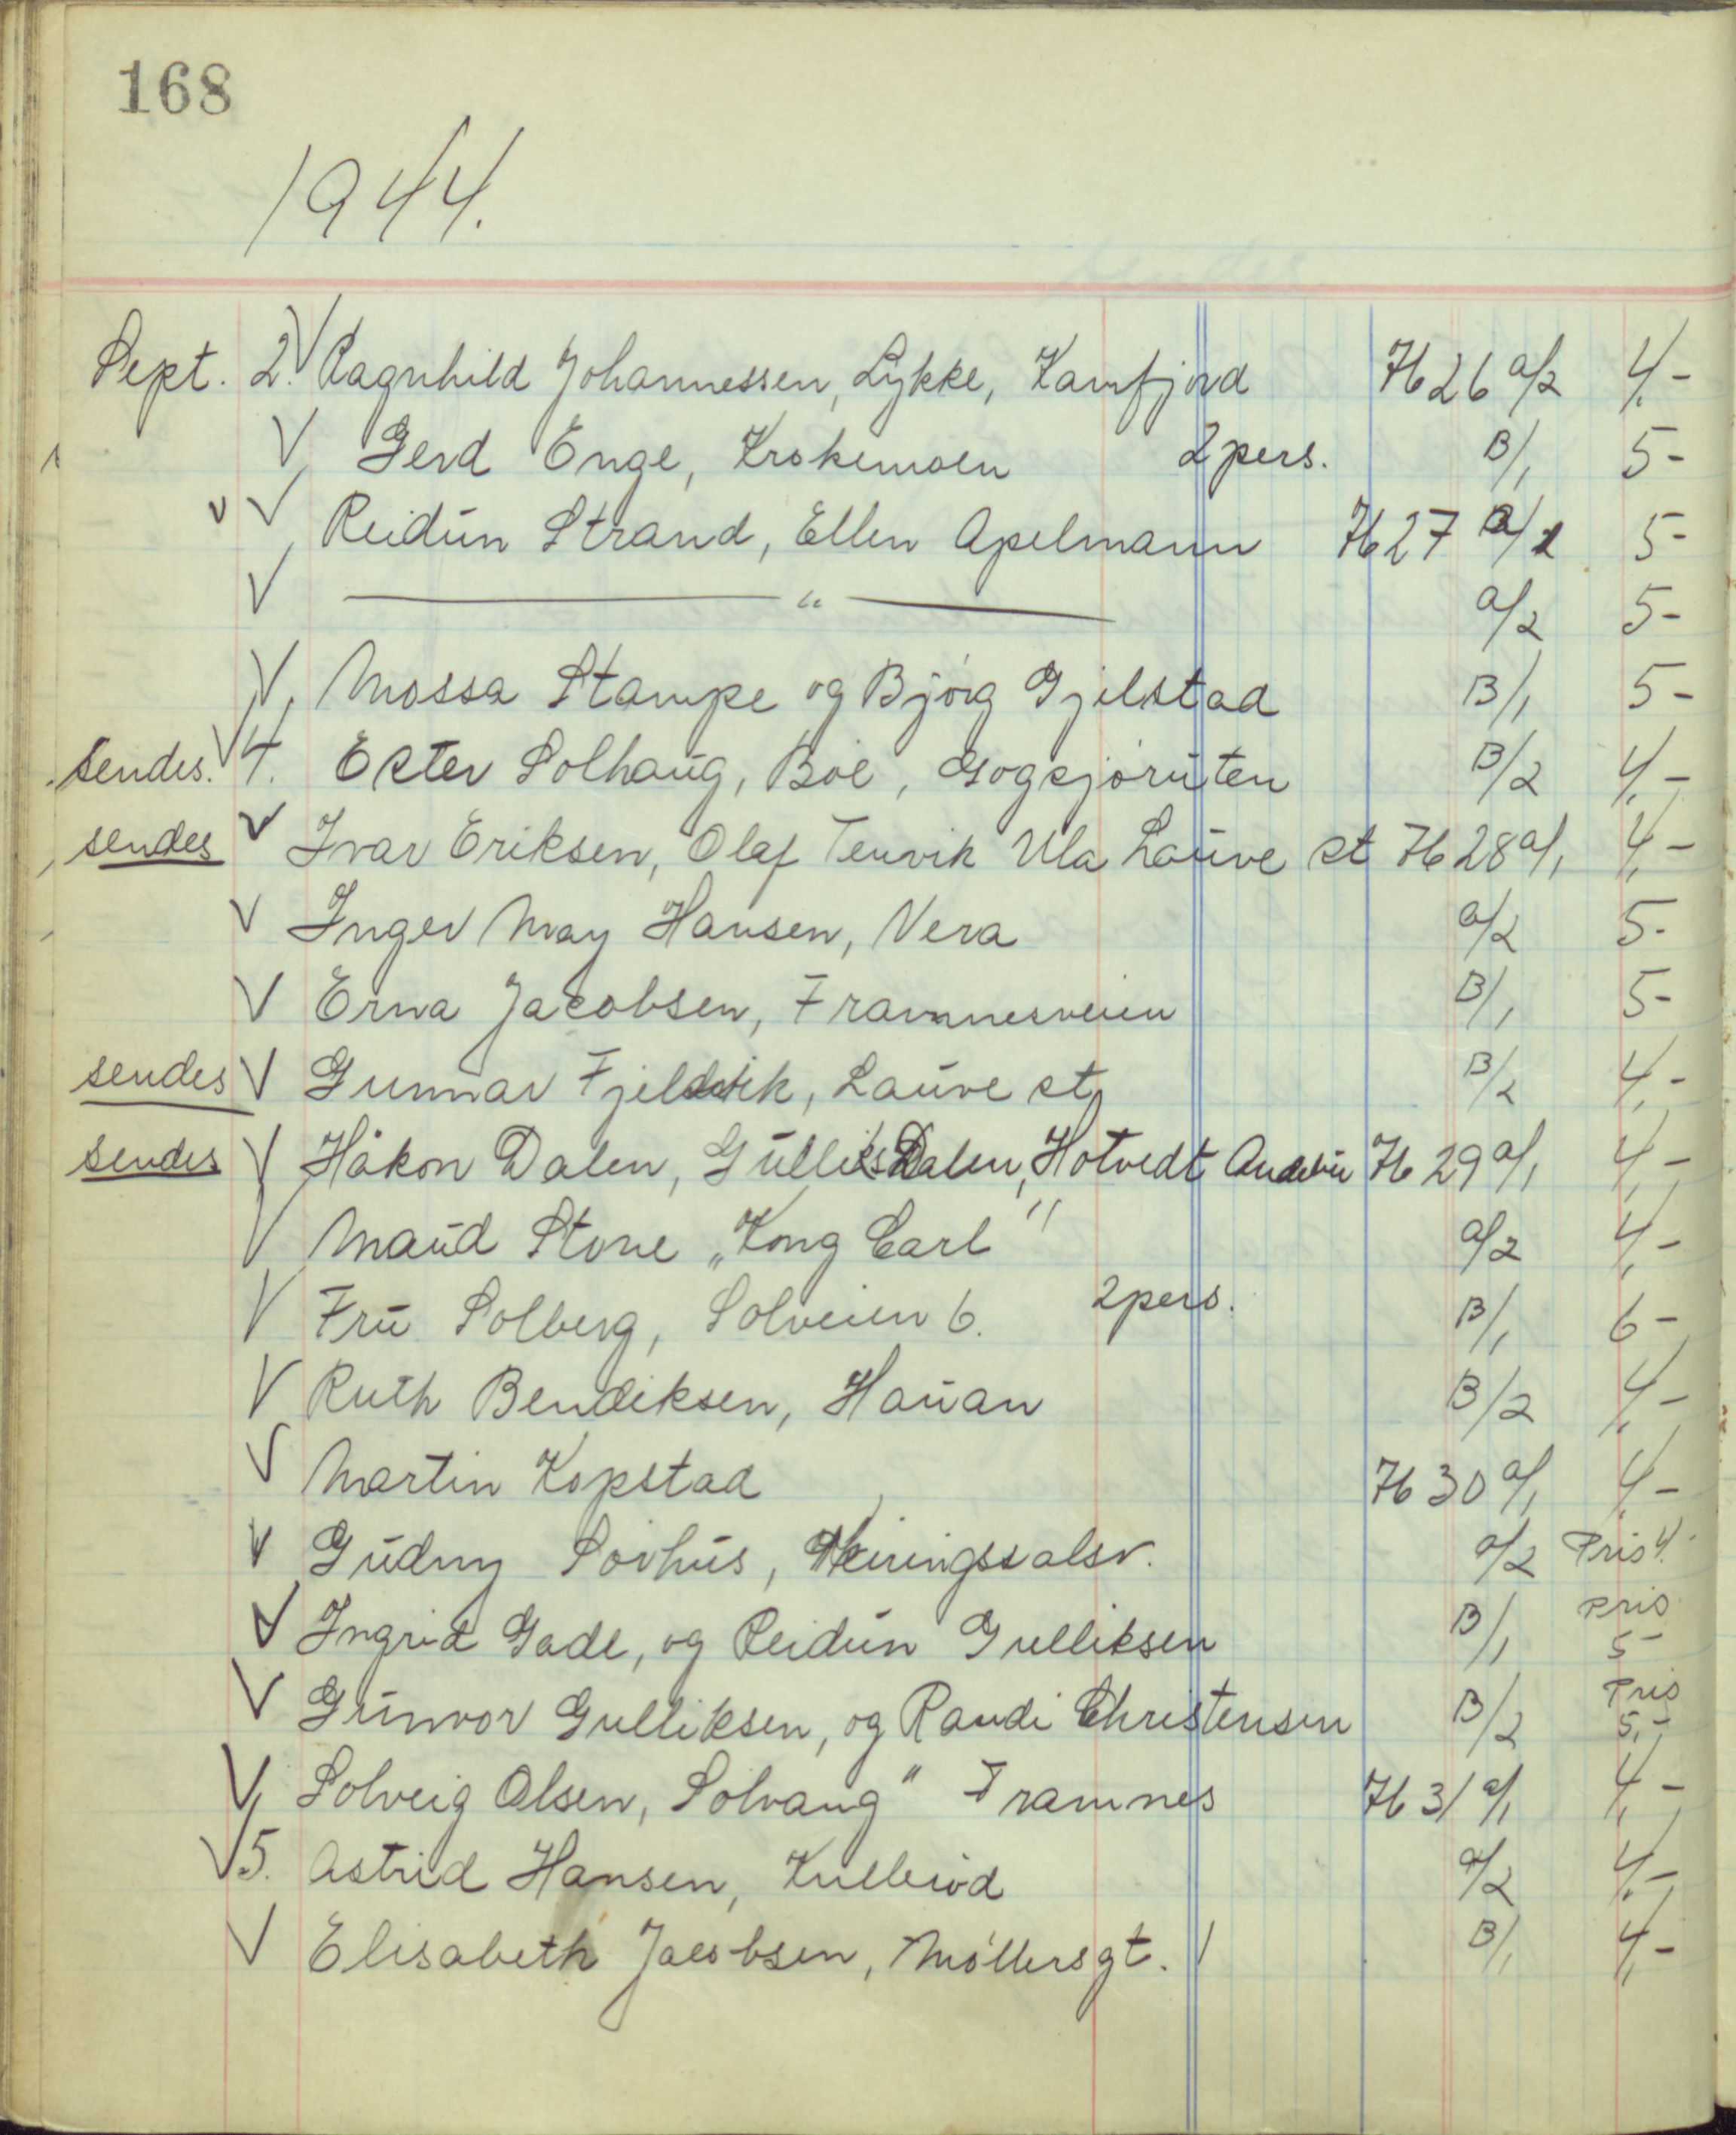 168
1944.
Sept. 2. V Ragnhild Johannessen, Lykke, Kamfjord H 26 a/2 4,-
V Gerd Enge, Krokemoen 2 pers. B/1 5-
v V Reidun Strand, Ellen Apelmann H 27 a/1 5-
V — " — a/2 5-
V Mossa Stampe og Bjørg Gjelstad B/1 5-
Sendes. V 4. Ester Solhaug, Bøe, Gogsjøruten B/2 4,-
sendes V Ivar Eriksen, Olaf Tenvik Ula Lauve st H 28 a/1 4,-
V Inger May Hansen, Vera a/2 5-
V Erna Jacobsen, Framnesveien B/1 5-
sendes V Gunnar Fjeldvik, Lauve st B/2 4,-
sendes V Håkon Dalen, Gulliks Dalen, Hotvedt Andebu H 29 a/1 4,-
V Maud Stone „Kong Carl" a/2 4,-
V Fru Solberg, Solveien 6. 2 pers. B/1 6-
V Ruth Bendiksen, Hauan B/2 4,-
V Martin Kopstad H 30 a/1 4,-
V Gudny Sørhus, Skiringssalsv. a/2 Pris 4.-
V Ingrid Gade, og Reidun Gulliksen B/1 pris 5-
V Gunvor Gulliksen, og Randi Christensen B/2 Pris 5,-
V Solveig Olsen, Solvang" Framnes H 31 a/1 4,-
V 5. Astrid Hansen, Kullerød a/2 4,-
V Elisabeth Jacobsen, Møllersgt. 1 B/1 4,-